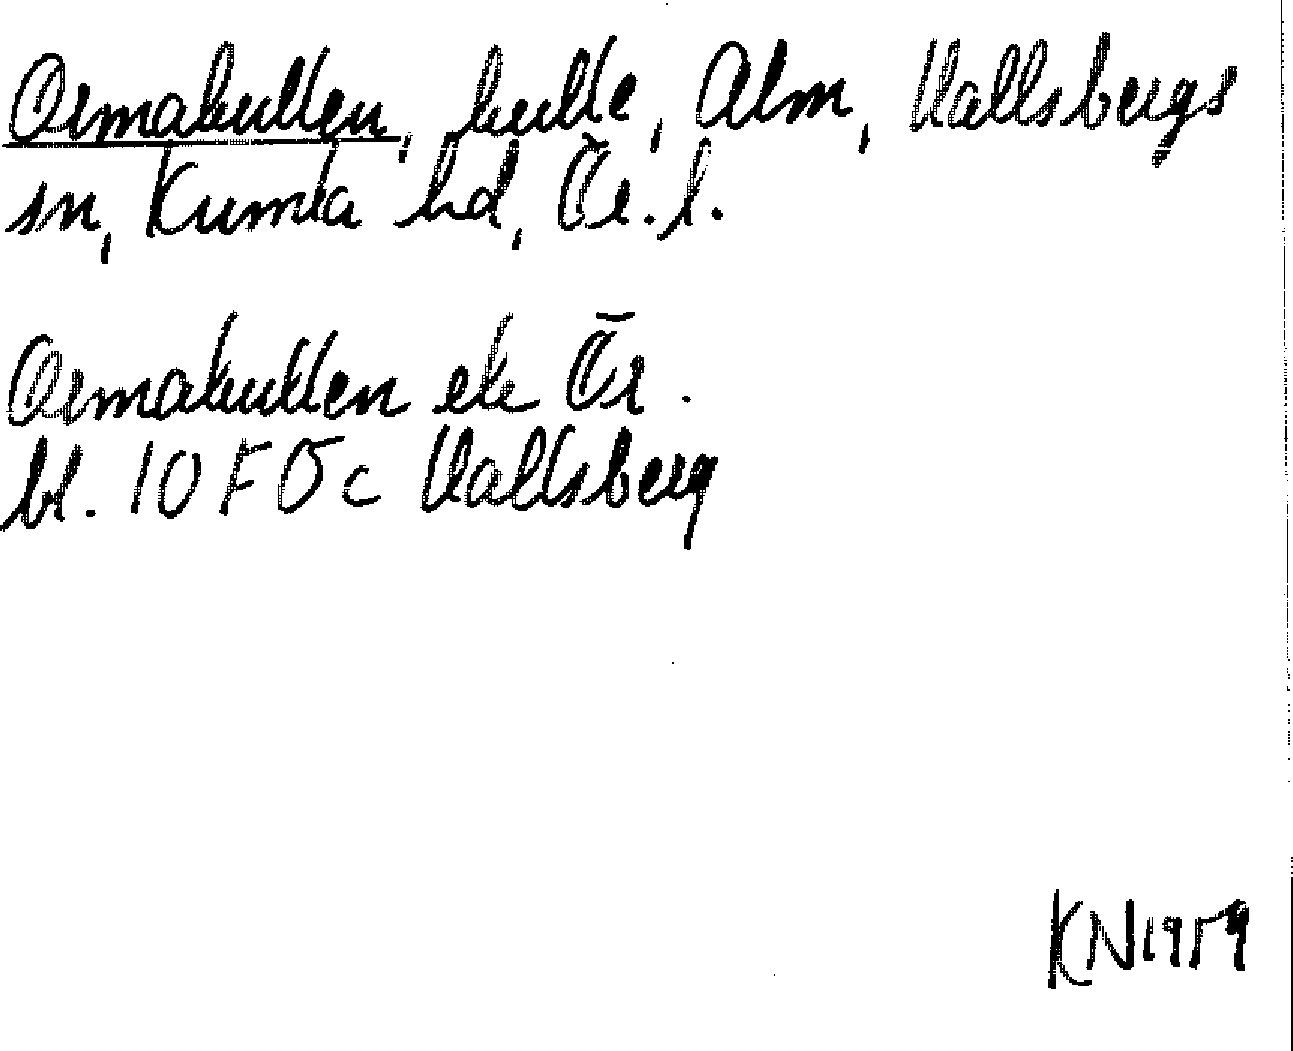 Ormakullen, kulle, Alm, Hallsbergs
sn, Kumla hd, Ör. l.
Ormakullen ek Ör.
bl. 10 F Ö c Hallsberg
KN 1959